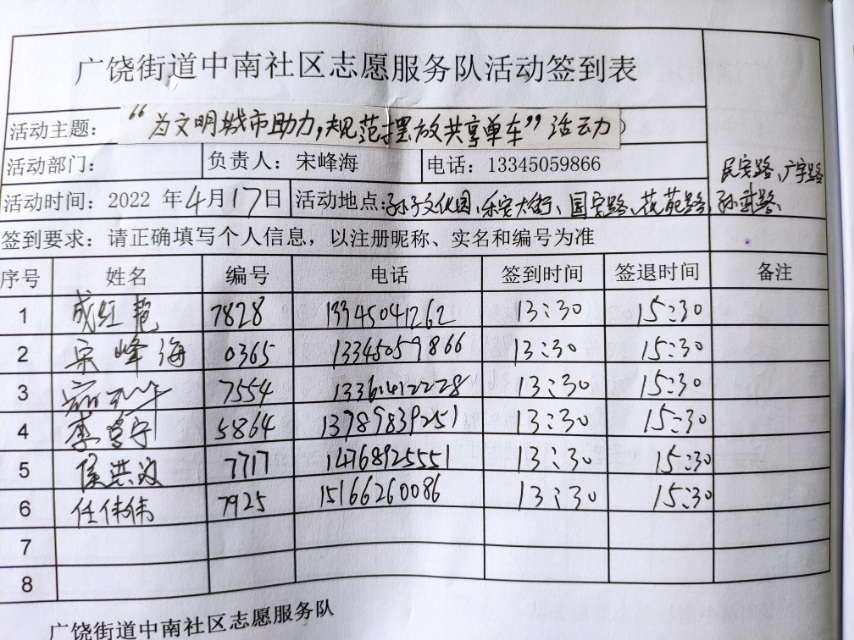 广饶街道中南社区志愿服务队活动签到表
活动主题：“为文明城市助力，规范摆放共享单车”活动）
活动部门： 负责人：宋峰海 电话：13345059866
民安路、广宇路
活动时间：2022 年4月17日 活动地点：孙子文化园、乐安大街、国安路、花苑路、孙武路、
签到要求：请正确填写个人信息，以注册昵称、实名和编号为准
序号 姓名 编号 电话 签到时间 签退时间 备注
1 成红艳 7828 13345041262 13:30 15:30
2 宋峰海 0365 13345059866 13:30 15:30
3 7554 13361412228 13:30 15:30
4 李 宁 5864 13789839251 13:30 15:30
5 侯洪 7717 14768925551 13:30 15:30
6 任伟伟 7925 15166260086 13:30 15:30
7
8
广饶街道中南社区志愿服务队